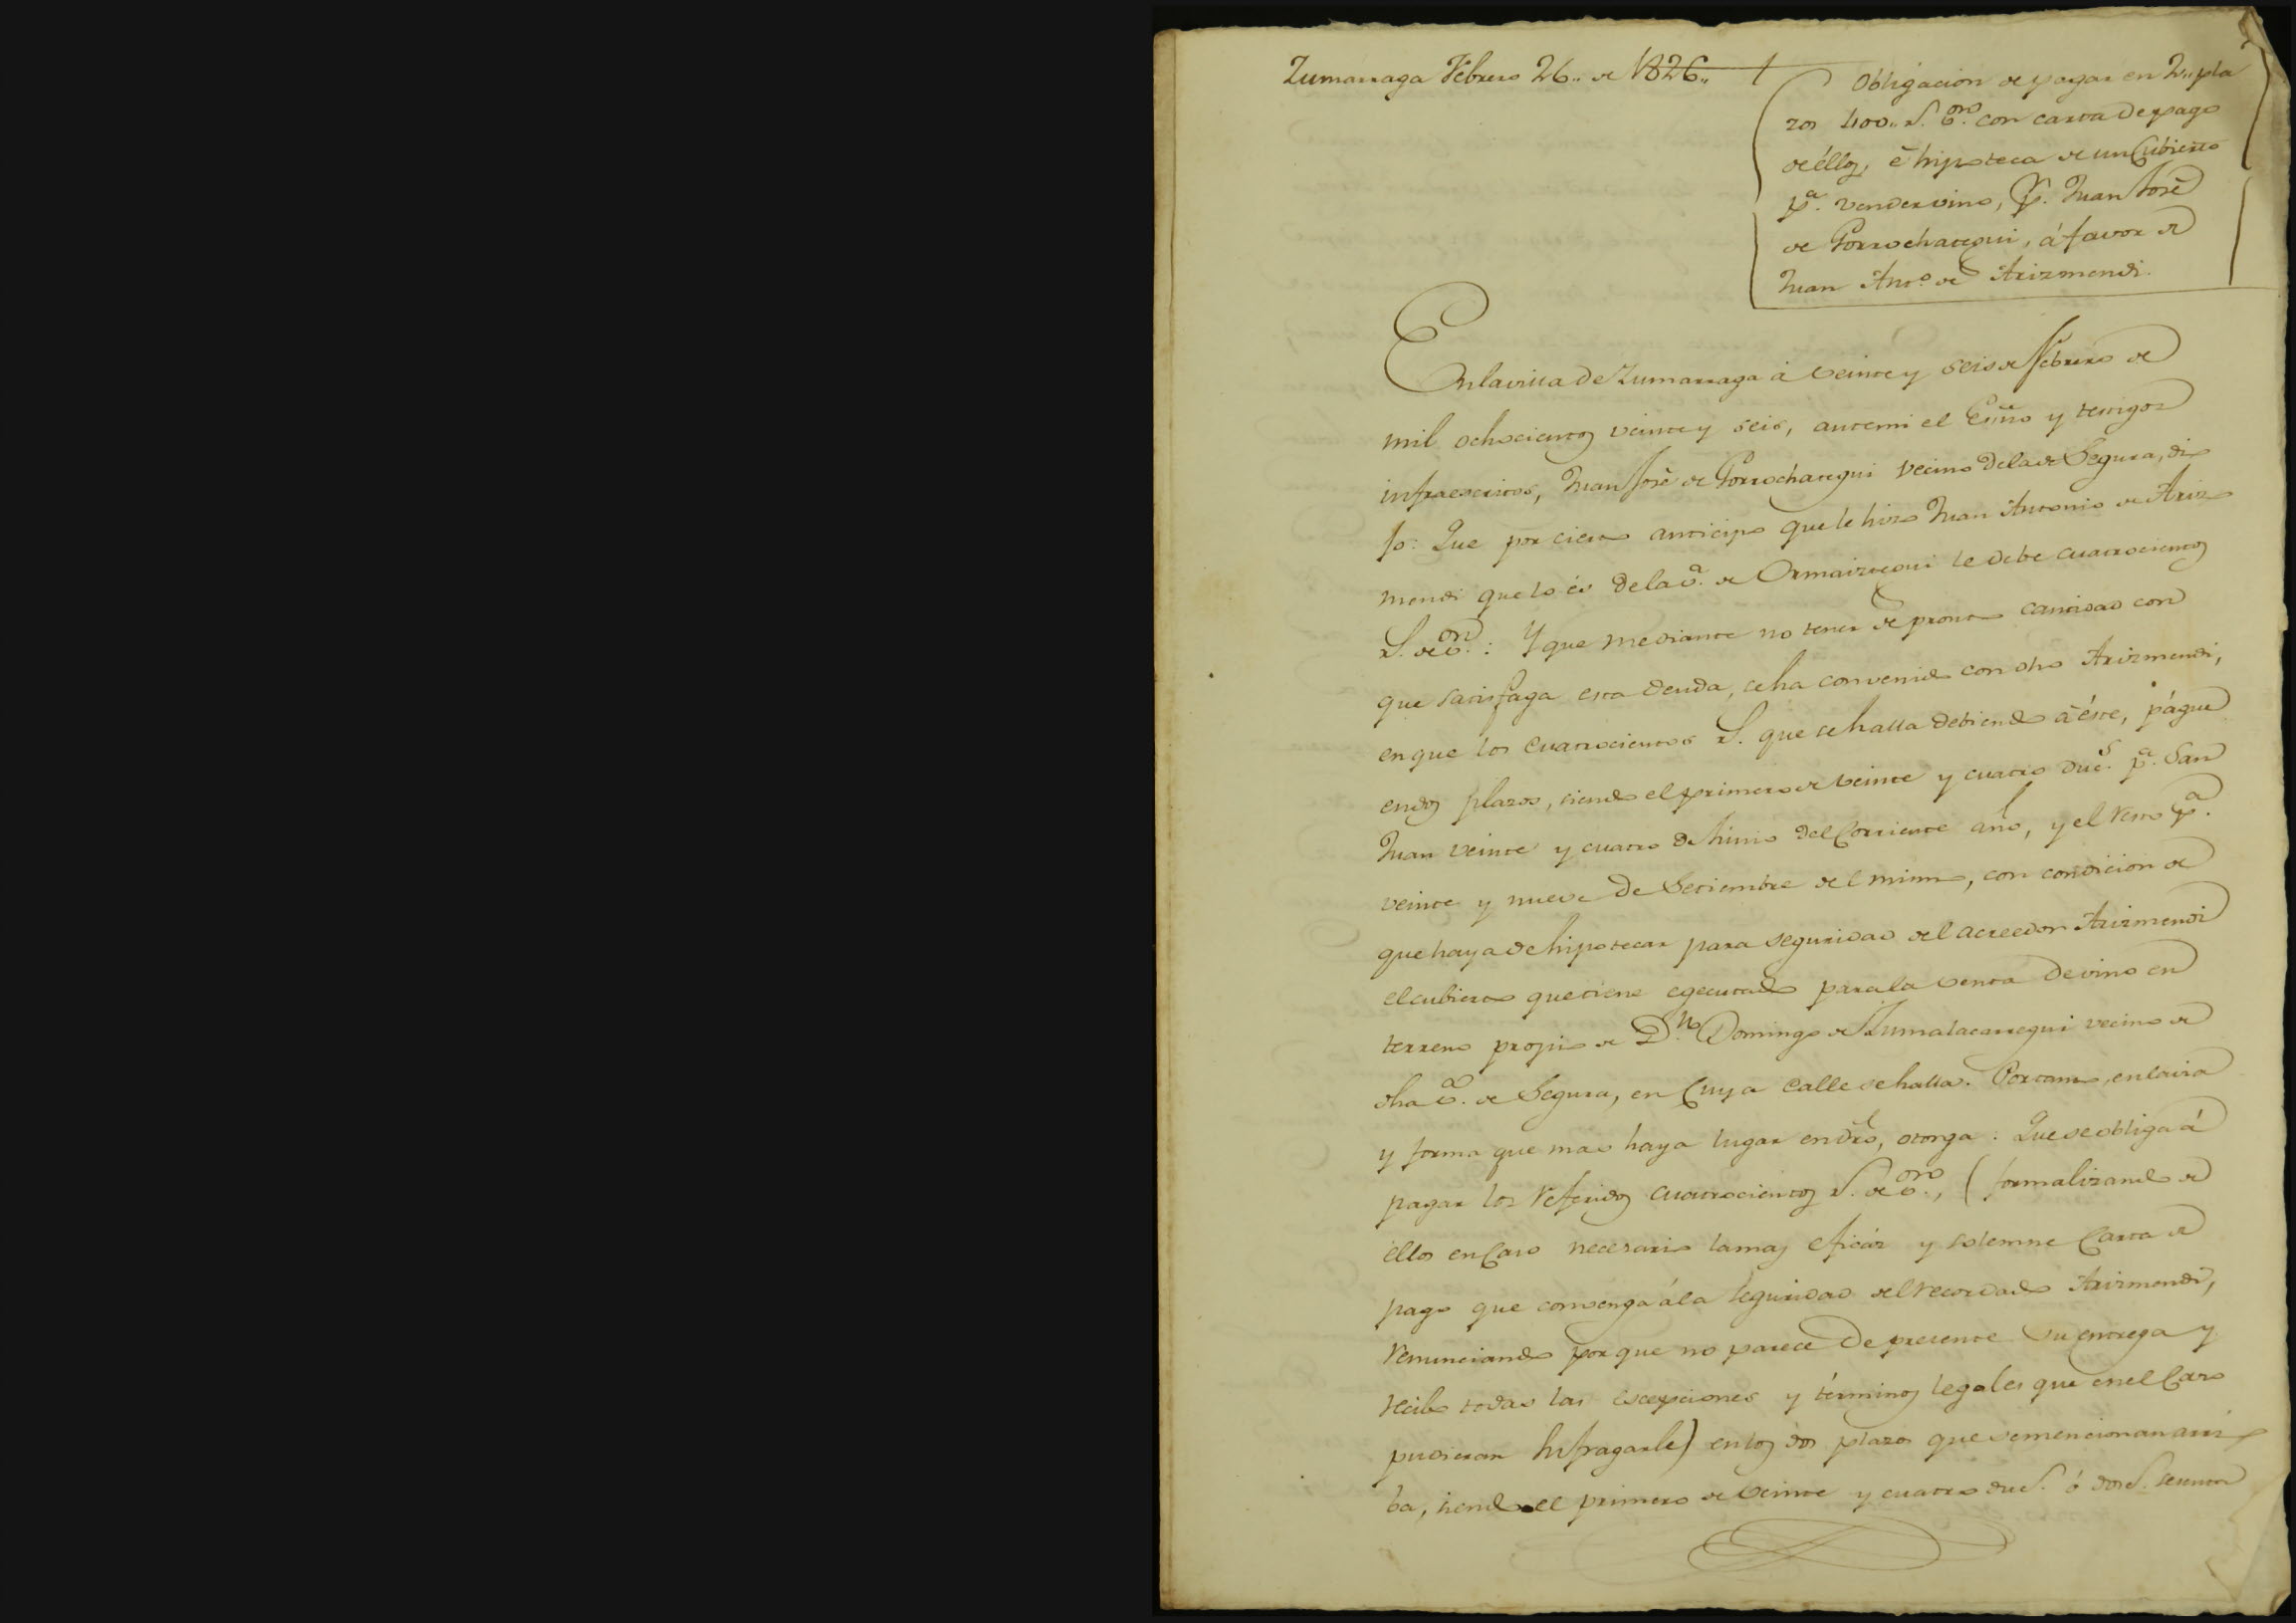 Zumarraga Febrero 26.. de 1826..
Obligacion de pagar en 2,, pla
zos 400,, r.s v.on con carta de pago
de éllos, é hipoteca de un Cubierto
p.a vender vino, P.r Juan José
de Gorrochategui, á favor de
Juan Ant.o de Arizmendi.
En la villa de Zumarraga á veinte y seis de Febrero de
mil ochocientos veinte y seis, antemi el Essno y testigos
infraescritos, Juan José de Gorrochategui vecino de la de Segura, di
jo: Que por cierto anticipo que le hizo Juan Antonio de Ariz
mendi que lo és de la v.a de Ormaiztegui le debe cuatrocientos
r.s de v.on: Y que mediante no tener de pronto cantidad con
que satisfaga esta deuda, se ha convenido con dho Arizmendi,
en que los cuatrocientos r.s que se halla debiendo á éste, págue
en dos plazos, siendo el primero de veinte y cuatro duc.s p.a San
Juan veinte y cuatro de Junio del Corriente año, y el resto p.a
veinte y nueve de Setiembre del mismo, con condicion de
que haya de hipotecar para seguridad del acreedor Arizmendi
el cubierto que tiene egecutado para la venta de vino en
terreno propio de D.n Domingo de Zumalacarregui vecino de
dha v.a de Segura, en Cuya Calle se halla. Portanto, en la via
y forma que mas haya lugar en dro, otorga: Que se obliga á
pagar los referidos cuatrocientos r.s de v.on, (formalizando de
éllos en Caso necesario la mas eficáz y solemne Carta de
pago que convenga á la seguridad del recordado Arizmendi,
renunciando por que no parece De presente su entrega y
recibo todas las escepciones y términos legales que en el Caso
pudieran sufragarle) en los dos plazos que se mencionan arri
ba, siendo el primero de veinte y cuatro duc.s ó dos.s sesenta